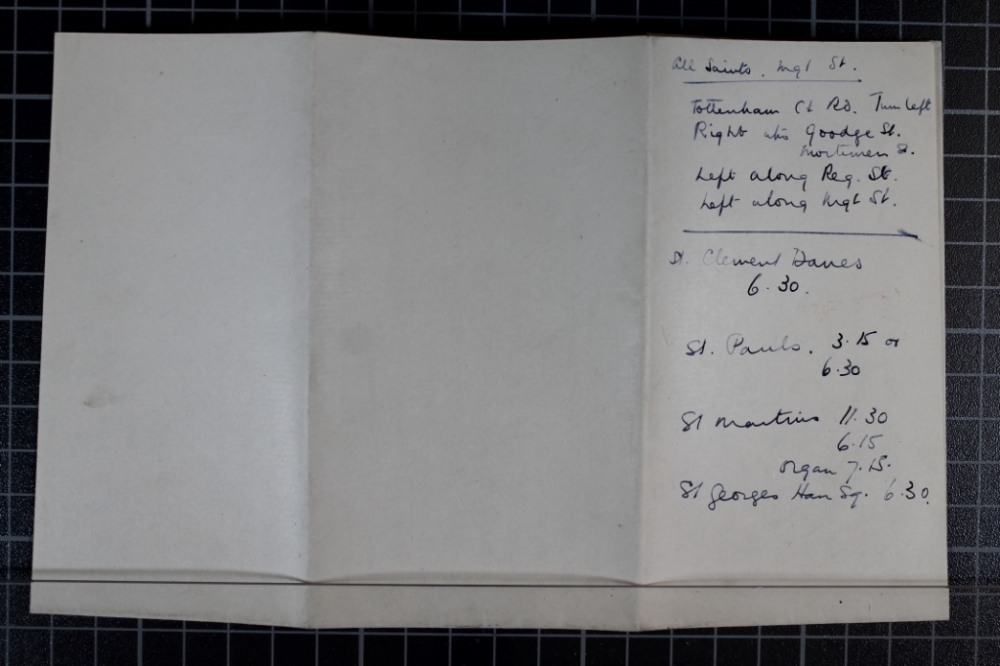 All Saints. Mgt St.
Tottenham Ct RD. Turn left
Right into Goodge St.
Mortimer St.
Left along Reg. St.
Left along Mgt St.
St. Clement Danes
6.30.
St. Pauls. 3.15 or
6.30
St Martins 11.30
6.15
Organ 7.15.
St Georges Han Sq. 6.30.